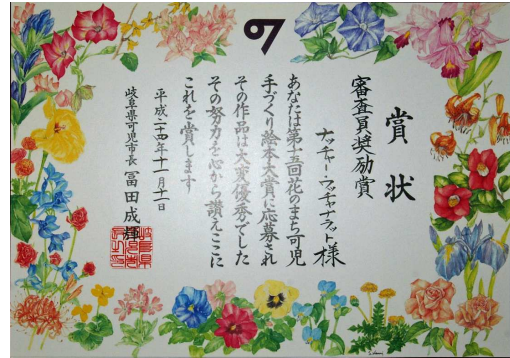 賞状
審査員奨励賞
ナッチャー・プッチャナラット様
あなたは第十五回花のまち可児
手づくり絵本大賞に応募され
その作品は大変優秀でした
その努力を心から讃えここに
これを賞します
平成二十四年十一月十一日
岐阜県可児市長 冨田成輝